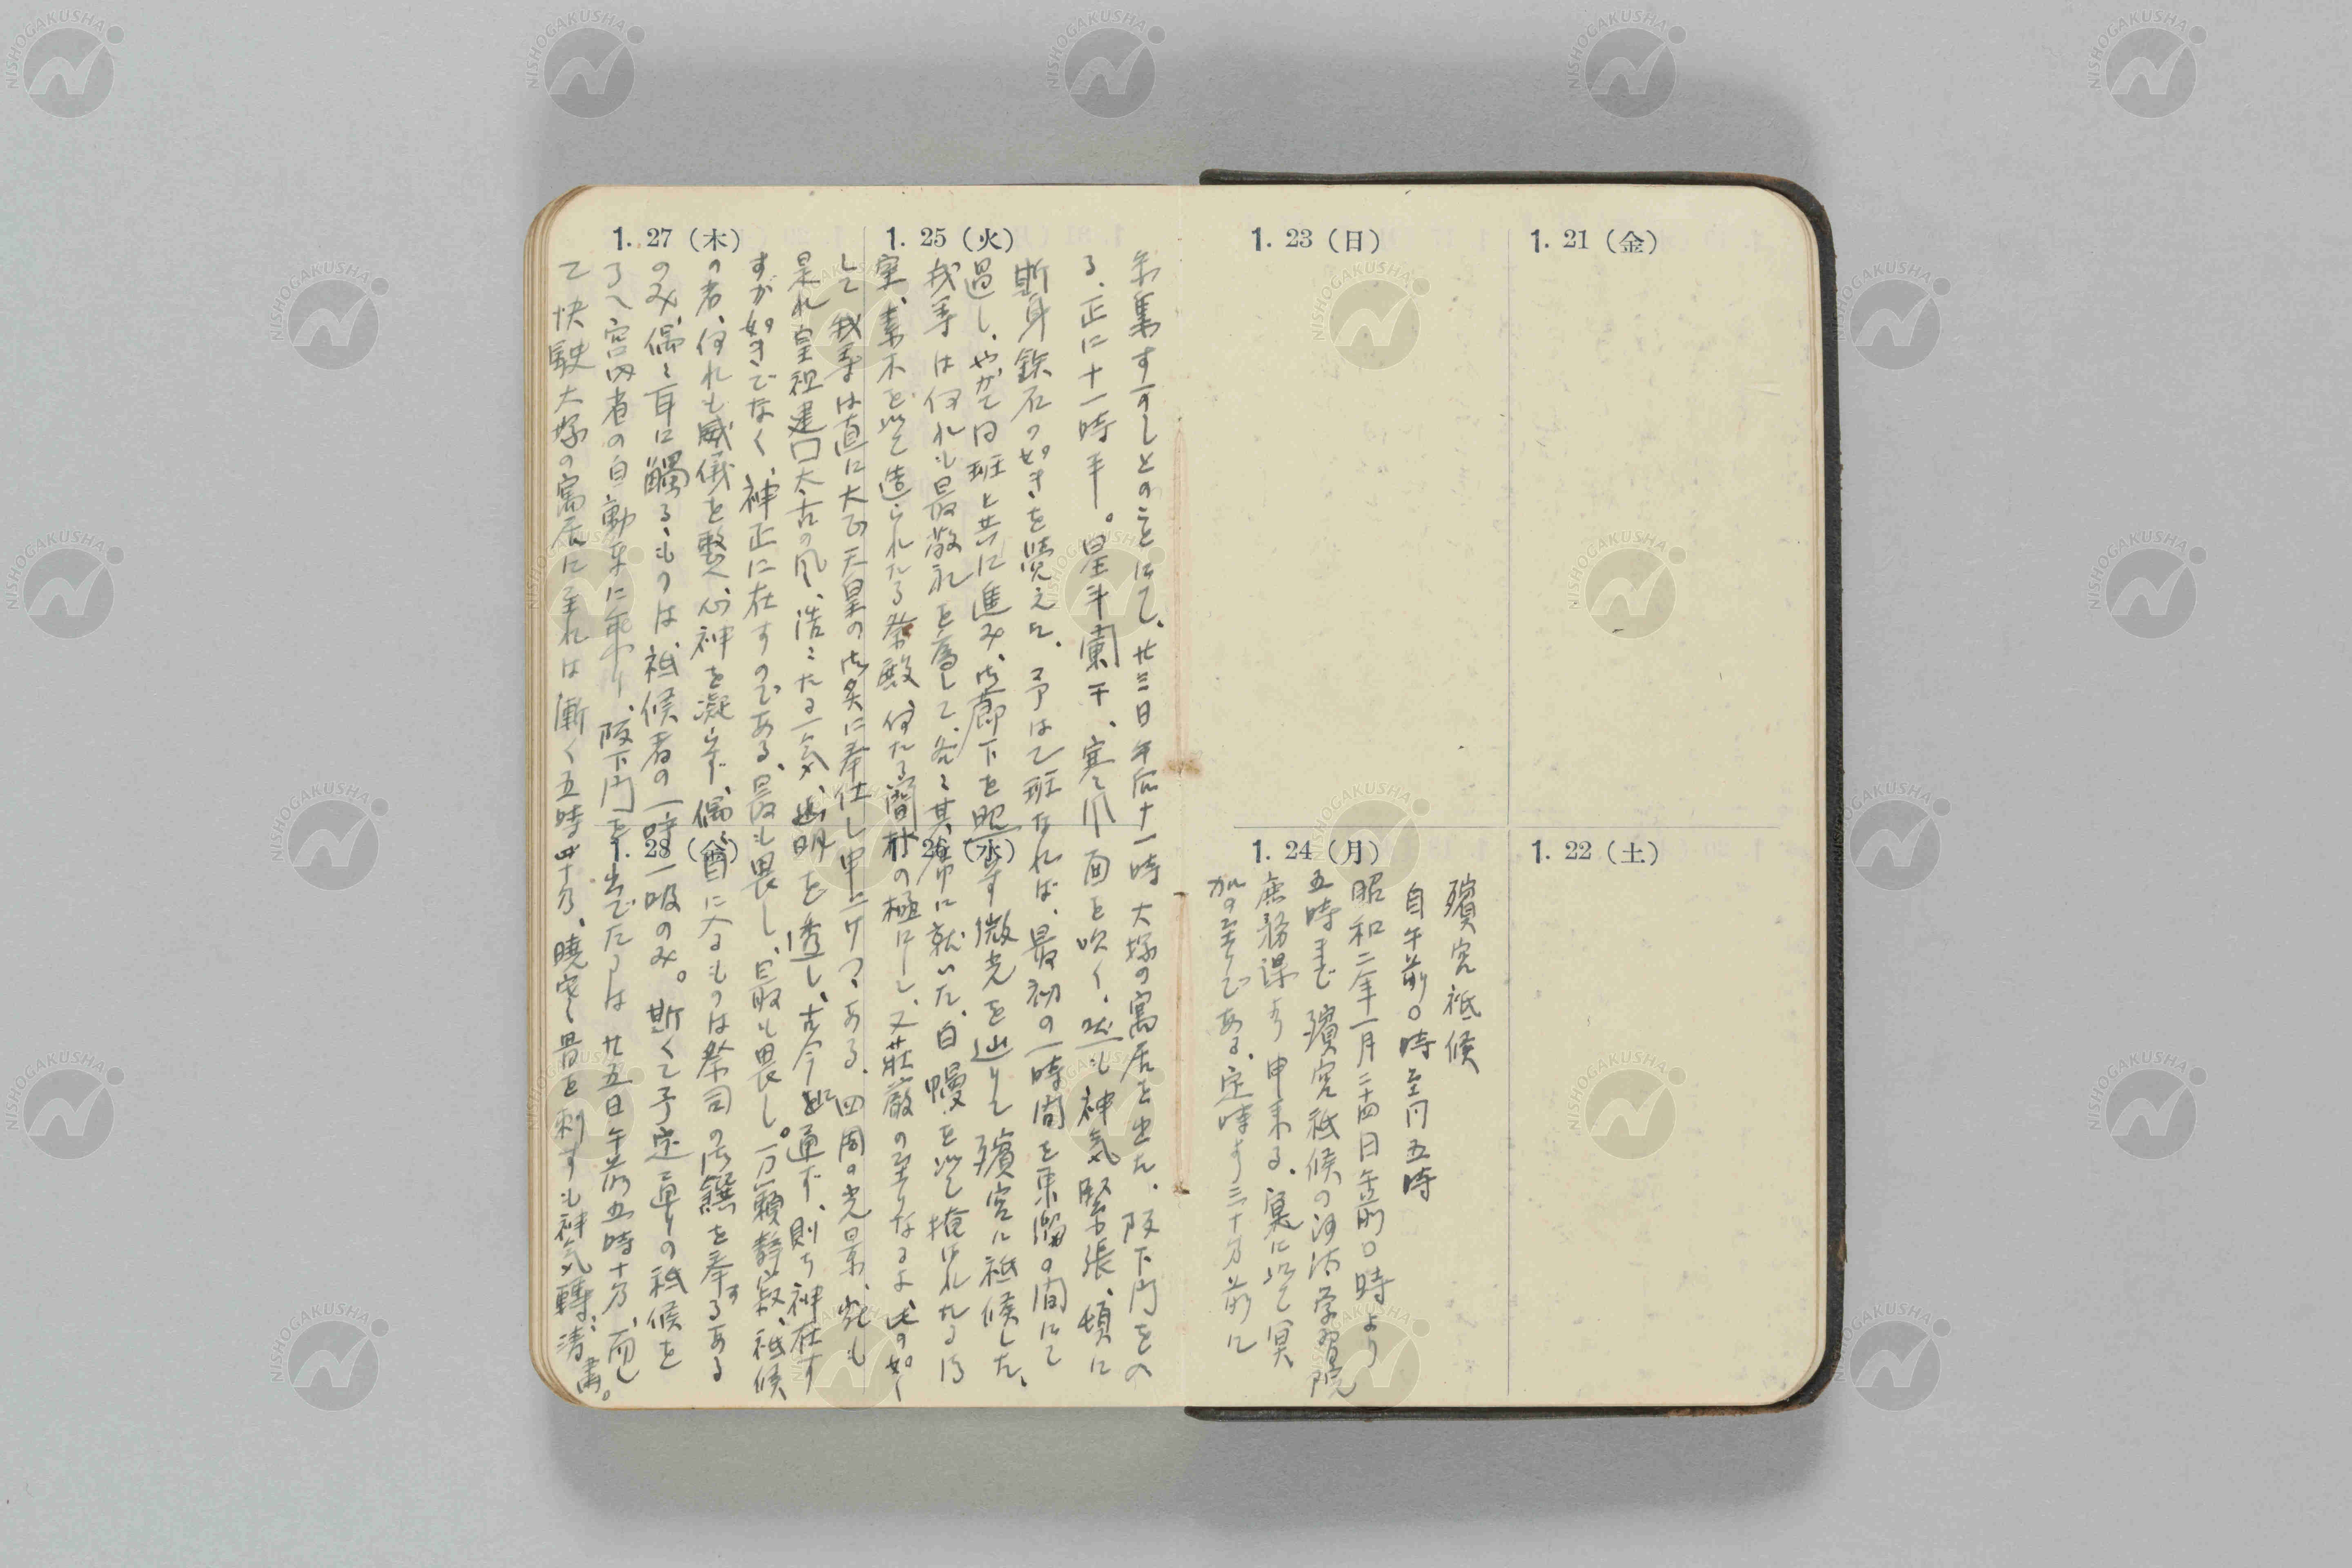 1. 21 (金)
1. 22 (土)
1. 23 (日)
1. 24 (月)
殯宮祗候
自午前〇時至同五時
昭和二年一月二十四日午前〇時より
五時まで殯宮祗候の御沙汰学習院
庶務課より申来る、寔に以て冥
加の至である、定時より三十分前に
参集すべしとのことにて、廿三日午后十一時大塚の寓居を出た、阪下門をの
る、正に十一時半。星斗闌干、寒風面を吹く、然も神気緊張、頓に
斯身鉄石の如きを覚えた、予は乙班なれば、最初の一時間を東溜の間にて
過し、やがて同班と共に進み、御廊下を照す微光を辿りて殯宮に祗候した、
我等は何れも最敬礼を為して、各々其席に就いた、白幔を以て掩はれたる御
室、素木を以て造られたる祭殿、何たる簡朴の極にして、又荘厳の至りなるよ、此の如く
して我等は直に大正天皇の御霊に奉仕し申上げつゝある、四周の光景、宛も
是れ皇祖建国太古の風、浩々たる一気、幽明を透し、古今を通ず、則ち神在す
すが如きでなく、神正に在すのである、最も畏し、最も畏し。万籟静寂、祗候
の者、何れも威儀を整へ、心神を凝らす、偶、に入るものは祭司の御饌を奉するある
のみ、偶々耳に觸るゝものは、祗候者の一呼一吸のみ。斯くて予定通りの祗候を
了へ宮内省の自動車に乗り、阪下門を出でたるは廿五日午前五時十分、而し
て快駛大塚の寓居に至れは漸く五時四十分、暁寒骨を刺すも神気轉々清粛。
1. 25 (火)
1. 26 (水)
1. 27 (木)
1. 28 (金)
NISHOGAKUSHA